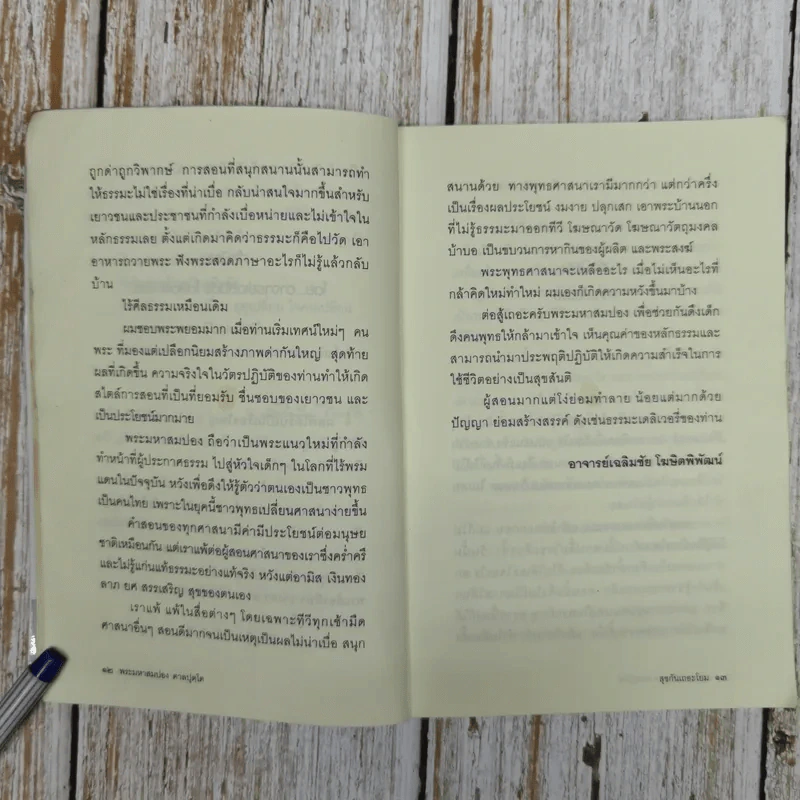 ถูกด่าถูกวิพากษ์ การสอนที่สนุกสนานนั้นสามารถทำ
ให้ธรรมะไม่ใช่เรื่องที่น่าเบื่อ กลับน่าสนใจมากขึ้นสำหรับ
เยาวชนและประชาชนที่กำลังเบื่อหน่ายและไม่เข้าใจใน
หลักธรรมเลย ตั้งแต่เกิดมาคิดว่าธรรมะก็คือไปวัด เอา
อาหารถวายพระ ฟังพระสวดภาษาอะไรก็ไม่รู้แล้วกลับ
บ้าน
ไร้ศีลธรรมเหมือนเดิม
ผมชอบพระพยอมมาก เมื่อท่านเริ่มเทศน์ใหม่ๆ คน
พระ ที่มองแต่เปลือกนิยมสร้างภาพด่ากันใหญ่ สุดท้าย
ผลที่เกิดขึ้น ความจริงใจในวัตรปฏิบัติของท่านทำให้เกิด
สไตล์การสอนที่เป็นที่ยอมรับ ชื่นชอบของเยาวชน และ
เป็นประโยชน์มากมาย
พระมหาสมปอง ถือว่าเป็นพระแนวใหม่ที่กำลัง
ทำหน้าที่ผู้ประกาศธรรม ไปสู่หัวใจเด็กๆ ในโลกที่ไร้พรม
แดนในปัจจุบัน หวังเพื่อดึงให้รู้ตัวว่าตนเองเป็นชาวพุทธ
เป็นคนไทย เพราะในยุคนี้ชาวพุทธเปลี่ยนศาสนาง่ายขึ้น
คำสอนของทุกศาสนามีค่ามีประโยชน์ต่อมนุษย
ชาติเหมือนกัน แต่เราแพ้ต่อผู้สอนศาสนาของเราซึ่งคร่ำครึ
และไม่รู้แก่นแท้ธรรมะอย่างแท้จริง หวังแต่อามิส เงินทอง
ลาภ ยศ สรรเสริญ สุขของตนเอง
เราแพ้ แพ้ในสื่อต่างๆ โดยเฉพาะทีวีทุกเช้ามืด
ศาสนาอื่นๆ สอนดีมากจนเป็นเหตุเป็นผลไม่น่าเบื่อ สนุก
๑๒ พระมหาสมปอง ตาลปุตฺโต
สนานด้วย ทางพุทธศาสนาเรามีมากกว่า แต่กว่าครึ่ง
เป็นเรื่องผลประโยชน์ งมงาย ปลุกเสก เอาพระบ้านนอก
ที่ไม่รู้ธรรมะมาออกทีวี โฆษณาวัด โฆษณาวัตถุมงคล
บ้าบอ เป็นขบวนการหากินของผู้ผลิต และพระสงฆ์
พระพุทธศาสนาจะเหลืออะไร เมื่อไม่เห็นอะไรที่
กล้าคิดใหม่ทำใหม่ ผมเองก็เกิดความหวังขึ้นมาบ้าง
ต่อสู้เถอะครับพระมหาสมปอง เพื่อช่วยกันดึงเด็ก
ดึงคนพุทธให้กล้ามาเข้าใจ เห็นคุณค่าของหลักธรรมและ
สามารถนำมาประพฤติปฏิบัติให้เกิดความสำเร็จในการ
ใช้ชีวิตอย่างเป็นสุขสันติ
ผู้สอนมากแต่โง่ย่อมทำลาย น้อยแต่มากด้วย
ปัญญา ย่อมสร้างสรรค์ ดังเช่นธรรมะเดลิเวอรี่ของท่าน
อาจารย์เฉลิมชัย โฆษิตพิพัฒน์
สุขกันเถอะโยม ๑๓